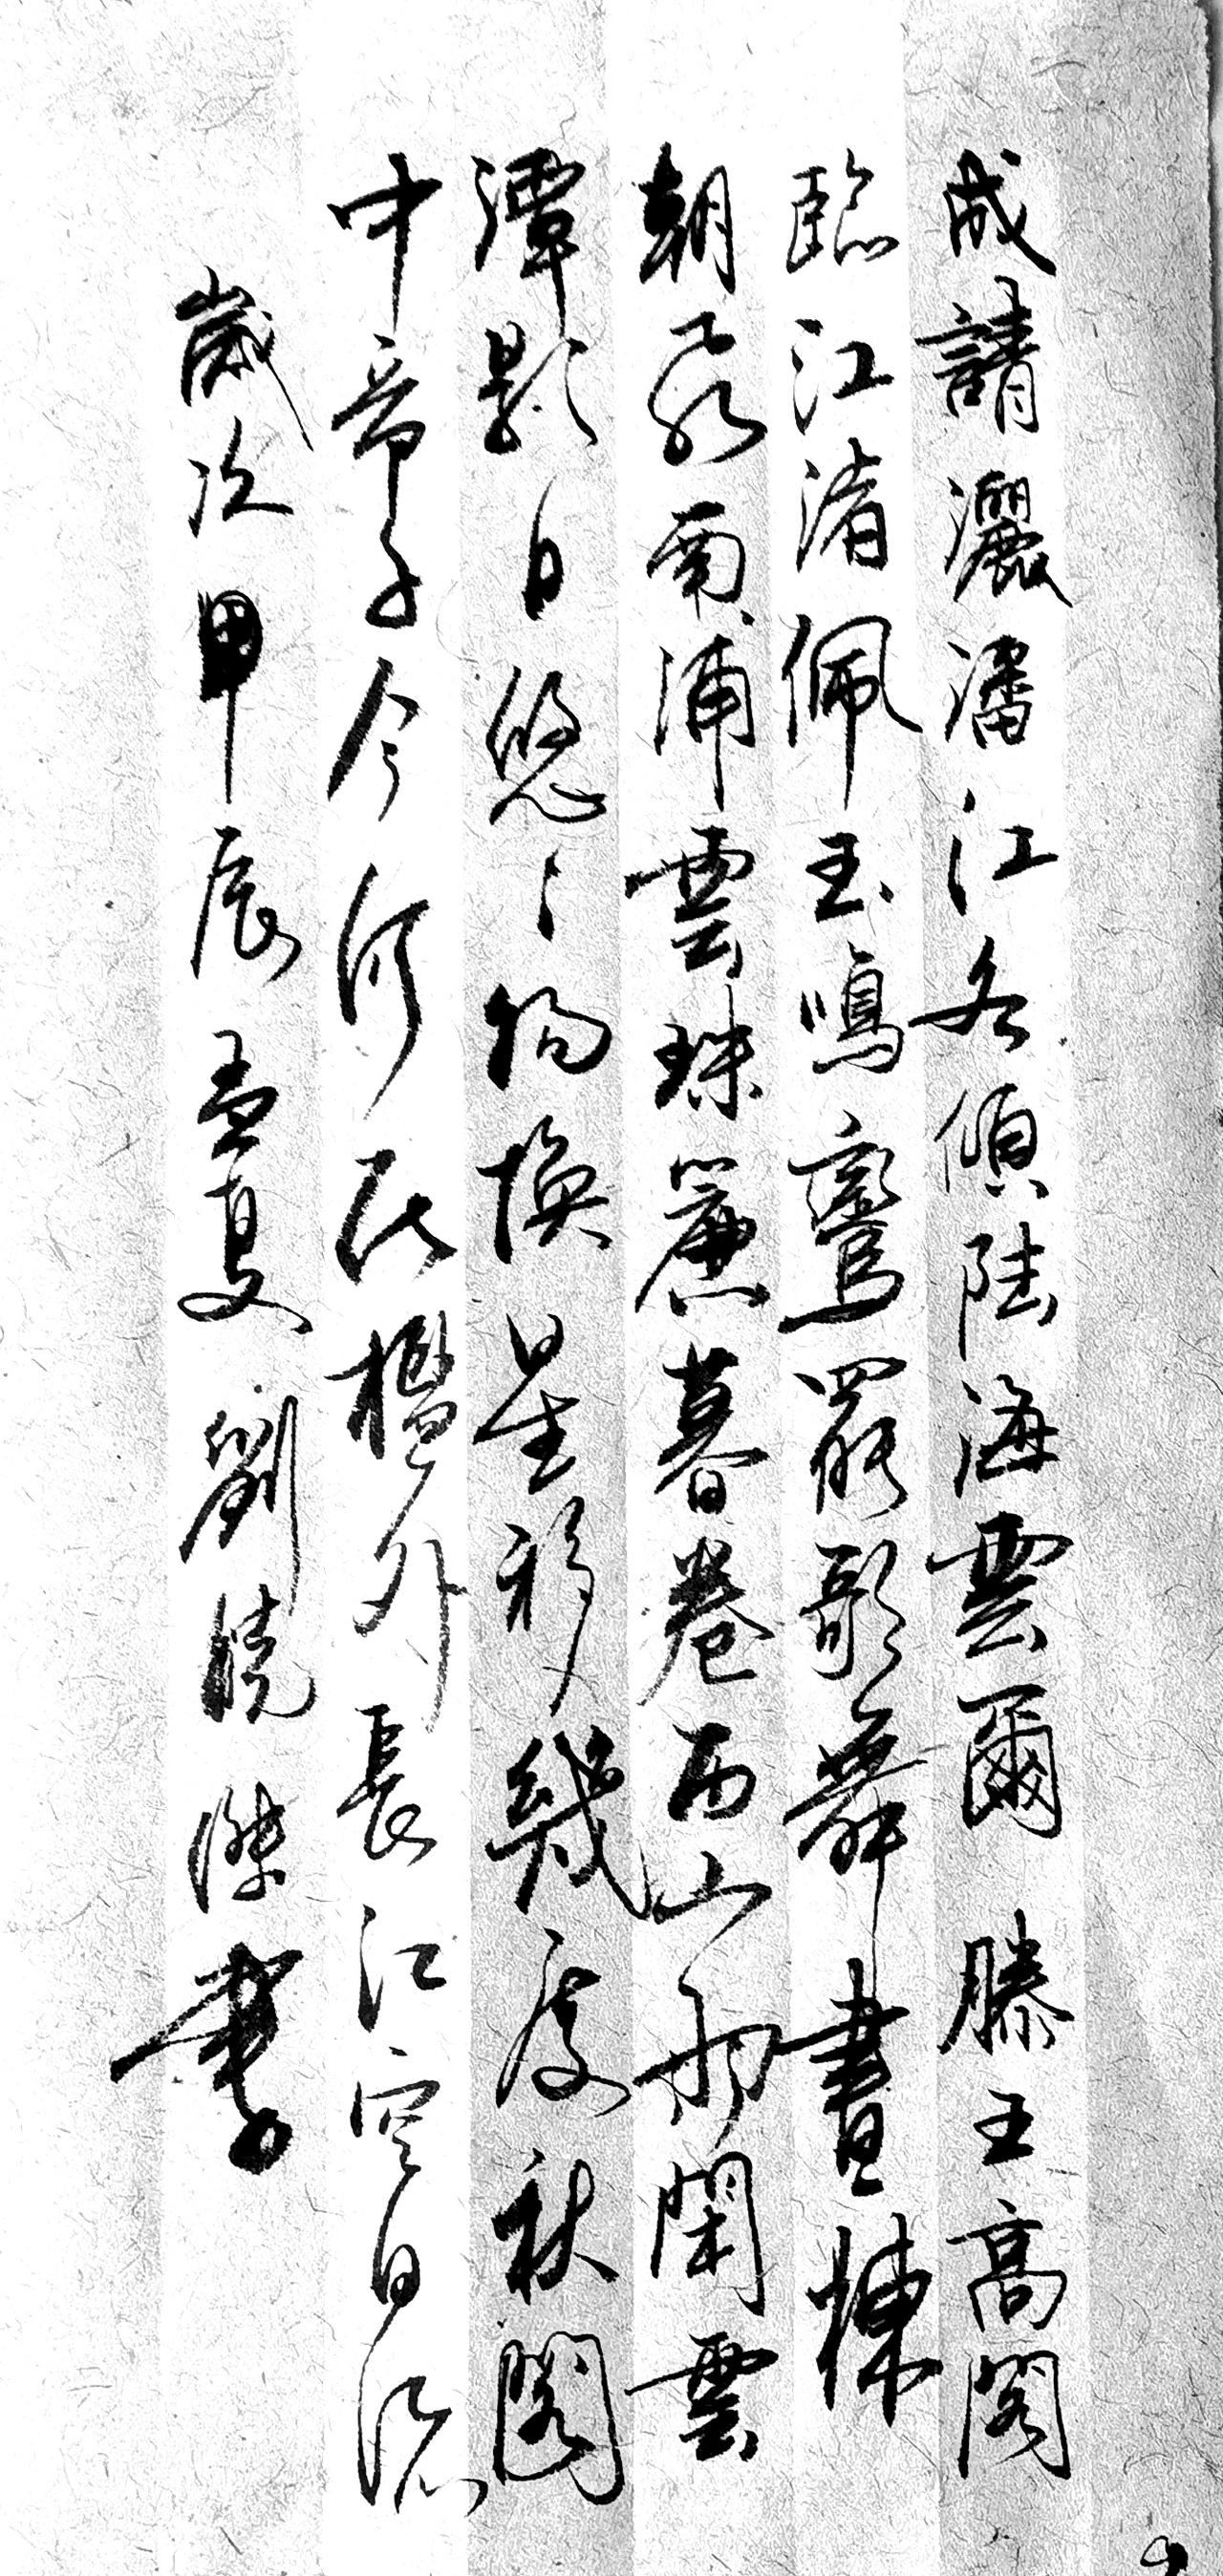 成請灑潘江各傾陸海雲爾滕王高閣
臨江渚佩玉鳴鸞罷歌舞畫棟
朝飛南浦雲珠簾暮卷西山雨閑雲
潭影日悠〻物換星移幾度秋閣
中帝子今何在檻外長江空自流
歲次甲辰孟夏劉曉傑書